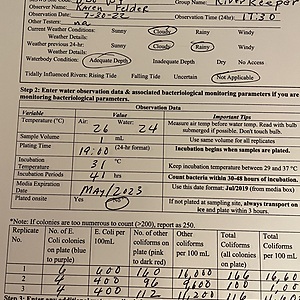 Observer Name: Karen Felder
Group Name: Riverkeeper
Date: 7-30-22
Observation Time (24hr): 17:30
Other Testers: na
Current Weather Conditions: Sunny Cloudy Rainy Windy
Weather Details:
Weather previous 24-hr: Sunny Cloudy Rainy Windy
Weather Details:
Waterbody Condition: Adequate Depth Inadequate Depth Dry No Access
Tidally Influenced Rivers: Rising Tide Falling Tide Uncertain Not Applicable
Step 2: Enter water observation data & associated bacteriological monitoring parameters if you are
monitoring bacteriological parameters.
Observation Data
Variable Value Important Tips
Temperature (°C) Air: 26 Water: 24 Measure air temp before water temp. Read with bulb
submerged if possible. Don't touch bulb.
Sample Volume 1 mL Use same volume for all replicates
Plating Time 19:00 (24-hr format) Incubation begins when samples are plated.
Incubation Temperature 31 °C Keep incubation temperature between 29 and 37 °C
Incubation Periods 41 hrs Count bacteria within 30-48 hours of incubation.
Media Expiration Date MAY/2023 Use this date format: Jul/2019 (from media box)
Plated onsite Yes No If not plated at sampling site, always transport on
ice and plate within 3 hours.
*Note: If colonies are too numerous to count (>200), report as 250.
Replicate No. No. of E. Coli colonies on plate (blue to purple) E. Coli per 100mL No. of other coliforms on plate (pink to dark red) Other coliforms per 100 mL Total Coliforms (all colonies on plate) Total Coliforms per 100
1 6 600 160 16,000 166 16,60
2 4 400 96 9,600 100
3 4 400